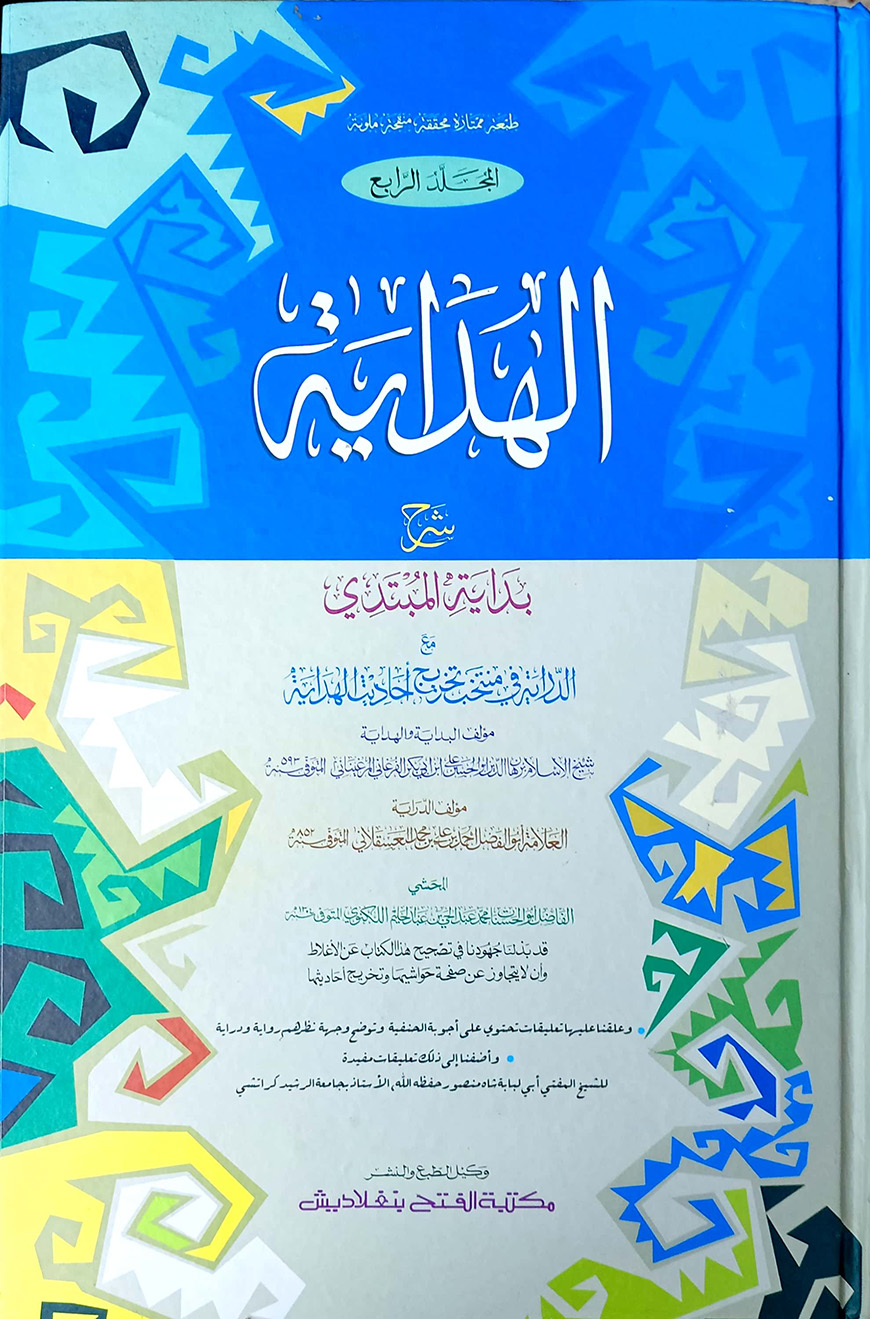 طبعة ممتازة محققة، منقحة، ملونة
المُجَلَّدُ الرَّابِع
الهِدَايَة
شرح
بِدَايَةِ المُبْتَدِي
مَعَ
الدِّرَايَة فِي مُنتَخَب تَخْرِيج أَحَادِيث الهِدَايَة
مؤلف البداية والهداية
شيخ الاسلام برهان الدين ابو الحسن علي ابن ابي بكر الفرغاني المرغيناني المتوفى سنة ٥٩٣
مؤلف الدراية
العلامة أبو الفضل احمد بن علي بن محمد العسقلاني المتوفى سنة ٨٥٢
المحشي
الفاضل ابو الحسنات محمد عبد الحي بن عبد الحليم اللكنوي المتوفى سنة
قد بذلنا جهودنا في تصحيح هذا الكتاب عن الأغلاط
وان لا يتجاوز عن صفحة حواشيها وتخريج أحاديثها
• وعلقنا عليها تعليقات تحتوي على أجوبة الحنفية وتوضح وجهة نظرهم رواية ودراية
• وأضفنا إلى ذلك تعليقات مفيدة
للشيخ المفتي أبي لبابة شاه منصور حفظه الله، الأستاذ بجامعة الرشيد كراتشي
وكيل الطبع والنشر
مكتبة الفتح بنغلاديش